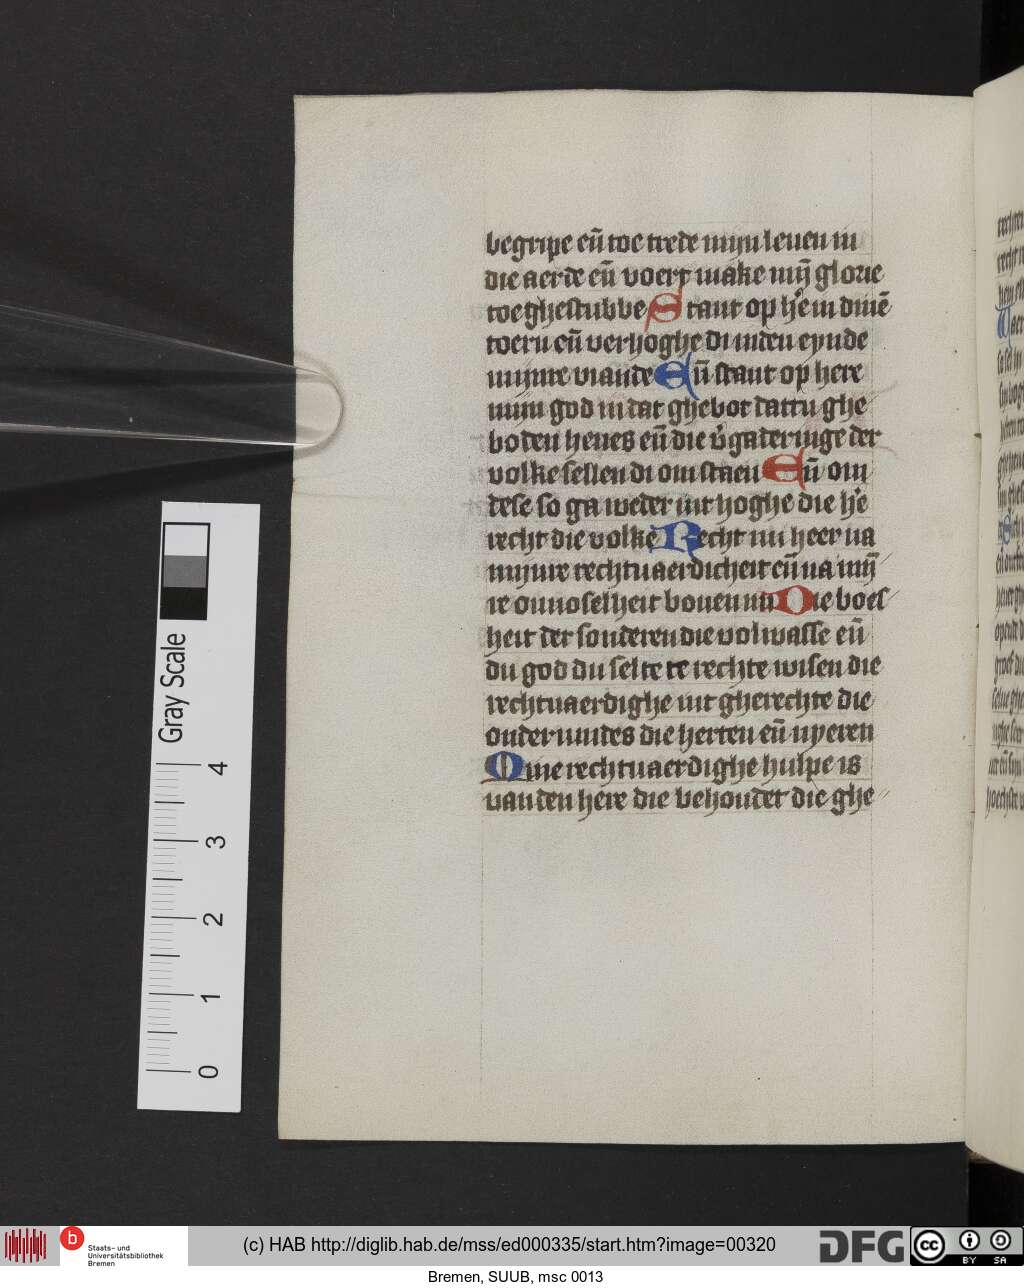 begripe eñ toe trede mijn leuen in
die aerde eñ voert make mij̄ glorie
toe ghestubbe Stant op hēe in dinē
toern eñ verhoghe di inden eynde
mijnre viande Eñ stant op here
mijn god in dat ghebot dattu ghe
boden heues eñ die v̄gaderinge der
volke sellen di om staen Eñ om
dese so ga weder int hoghe die hēe
recht die volke Recht mi heer na
mijnre rechtuaerdicheit eñ na mij̄
re onnoselheit bouen mi Die boes
heit der sonderen die vol wasse eñ
du god du selte te rechte wisen die
rechtuaerdighe uut gherechte die
ondervindes die herten eñ nyeren
Mine rechtuaerdighe hulpe is
vanden here die behoudet die ghe
Gray Scale
4
3
2
1
0
b Staats- und
Universitätsbibliothek
Bremen
(c) HAB http://diglib.hab.de/mss/ed000335/start.htm?image=00320
DFG
cc BY SA
Bremen, SUUB, msc 0013